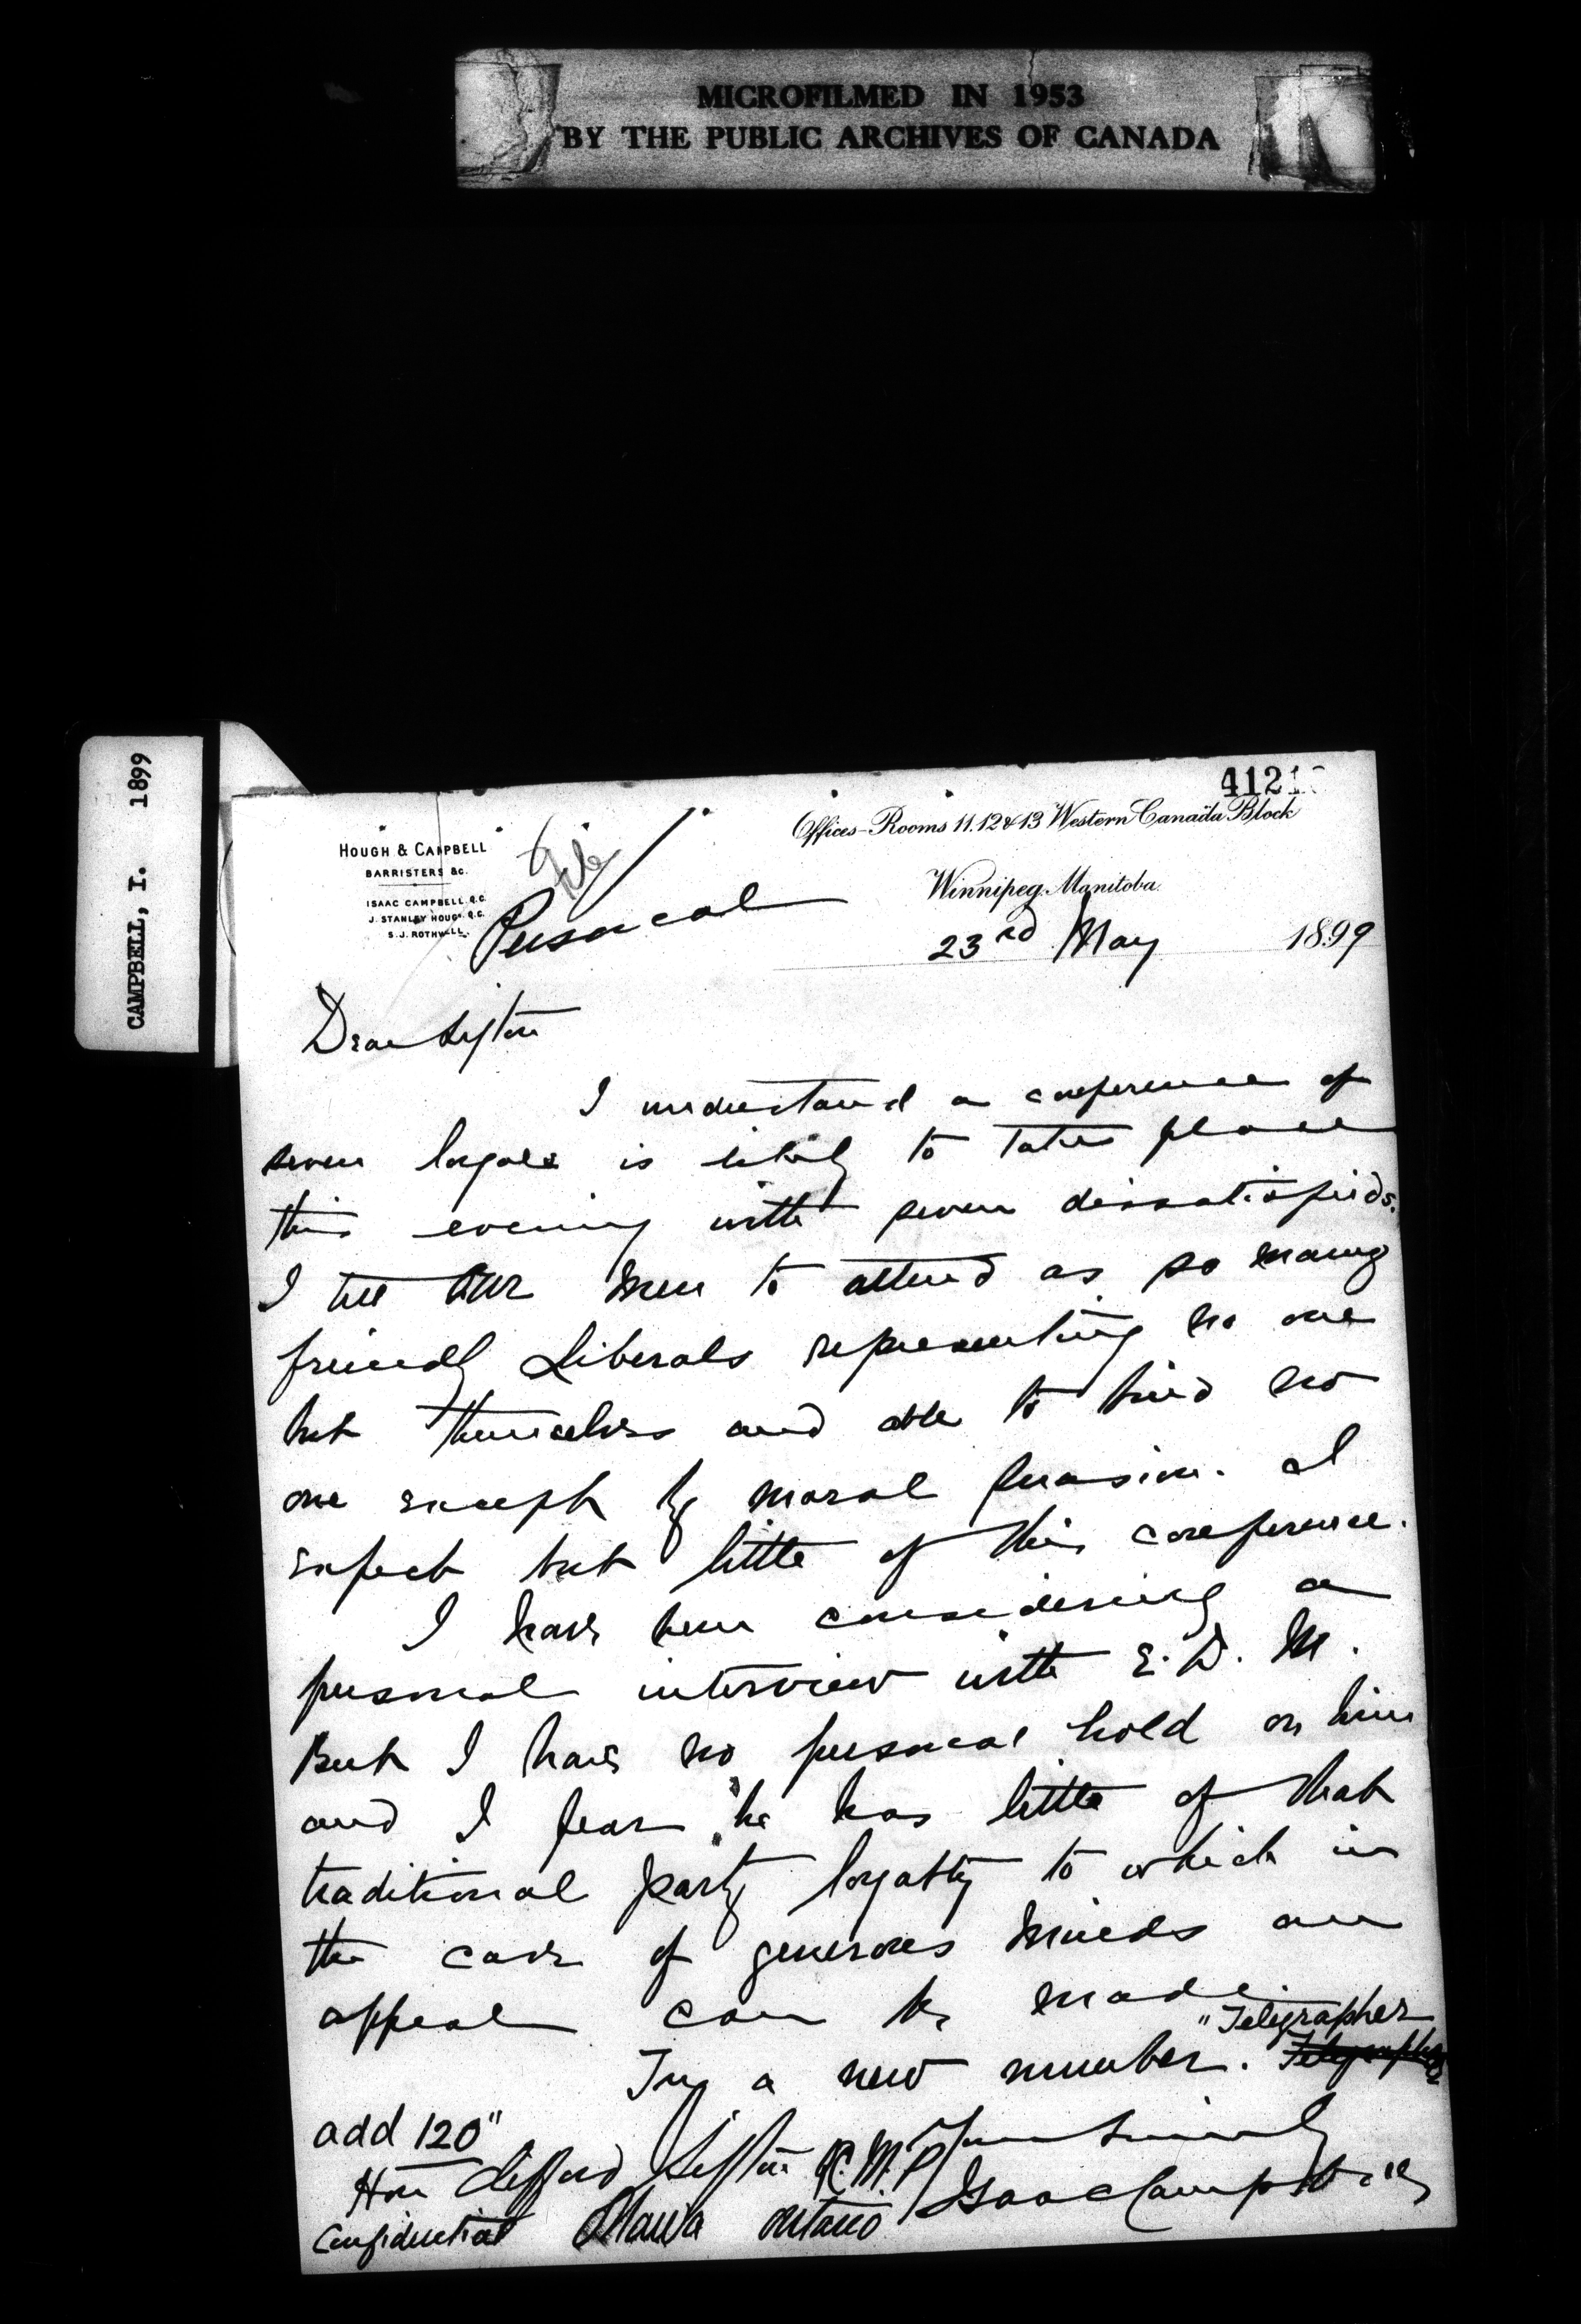 MICROFILMED IN 1953
BY THE PUBLIC ARCHIVES OF CANADA
CAMPBELL, I. 1899
4121
HOUGH & CAMPBELL
BARRISTERS &C.
ISAAC CAMPBELL Q.C.
J. STANLEY HOUGH Q.C.
S. J. ROTHWELL.
File
Offices-Rooms 11.12&13 Western Canada Block
Winnipeg, Manitoba.
Personal
23rd May 1899
Dear Sifton
I understand a conference of
seven loyals is likely to take place
this evening with seven dissatisfieds.
I tell our men to attend as so many
friendly Liberals representing no one
but themselves and able to bind no
one except by moral suasion. I
expect but little of this conference.
I have been considering a
personal interview with E. D. M.
But I have no personal hold on him
and I fear he has little of that
traditional party loyalty to which in
the case of generous minds an
appeal can be made
Try a new number. "Telegrapher
add 120"
Yours Sincerely
Hon Clifford Sifton M.P.
Isaac Campbell
Confidential Ottawa Ontario